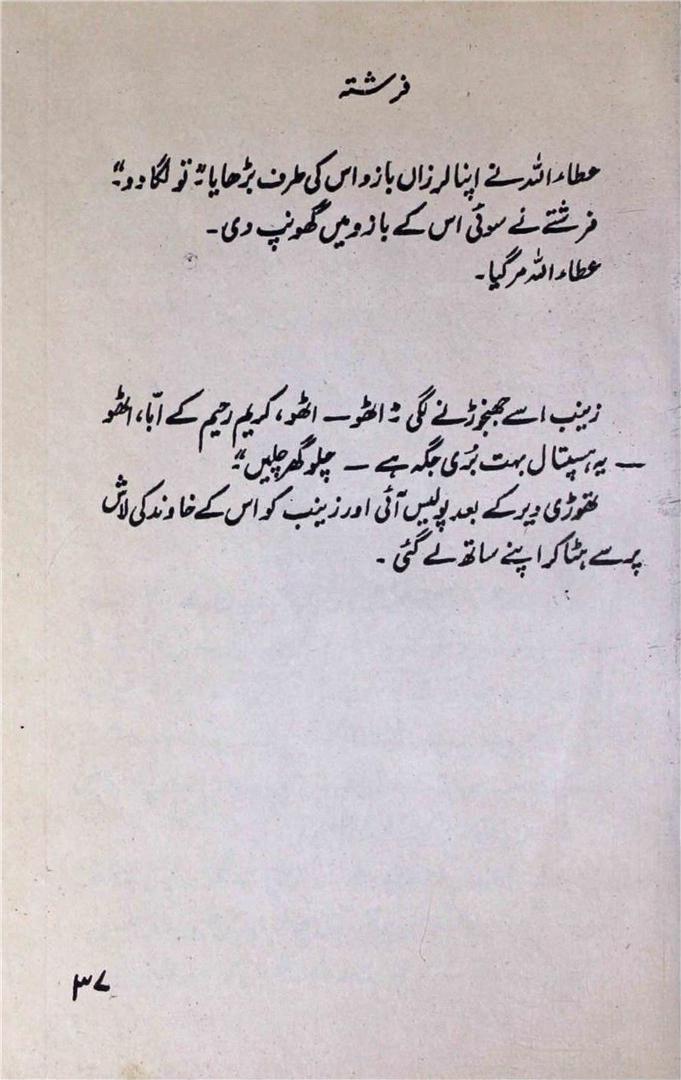 فرشتہ
عطاء اللہ نے اپنا لرزاں بازو اس کی طرف بڑھایا: ”تو لگا دو۔“
فرشتے نے سوئی اس کے بازو میں گھونپ دی۔
عطاء اللہ مر گیا۔
زینب اسے جھنجوڑنے لگی: ”اٹھو — اٹھو، کریم رحیم کے ابّا، اٹھو
— یہ ہسپتال بہت بُری جگہ ہے — چلو گھر چلیں۔“
تھوڑی دیر کے بعد پولیس آئی اور زینب کو اس کے خاوند کی لاش
پر سے ہٹا کر اپنے ساتھ لے گئی۔
۳۷